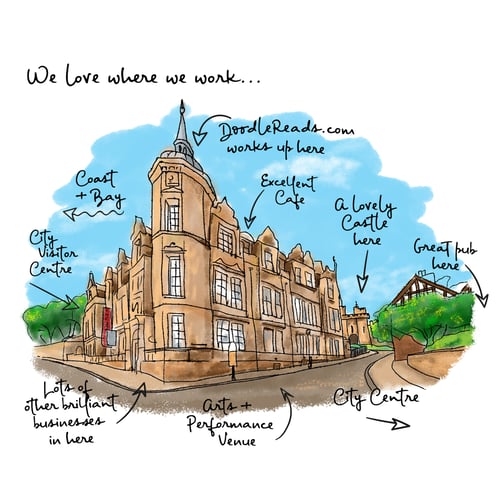 We love where we work...
DoodleReads.com
works up here
Coast
+ Bay
Excellent
Cafe
A lovely
Castle
here
City
Visitor
Centre
Great pub
here
Lots of
other brilliant
businesses
in here
Arts +
Performance
Venue
City Centre